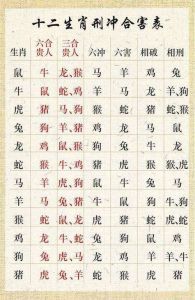 十二生肖刑冲合害表
生肖 六合贵人 三合贵人 六冲 六害 相破 相刑
鼠 牛 龙、猴 马 羊 鸡 兔
牛 鼠 蛇、鸡 羊 马 龙
虎 猪 马、狗 猴 蛇 猪
兔 狗 羊、猪 鸡 龙 马 鼠
龙 鸡 鼠、猴 狗 兔 牛 龙
蛇 猴 牛、鸡 猪 虎 猴
马 羊 虎、狗 鼠 牛 兔 马
羊 马 兔、猪 牛 鼠 狗
猴 蛇 鼠、龙 虎 猪 蛇
鸡 龙 牛、蛇 兔 狗 鼠 鸡
狗 兔 虎、马 龙 鸡 羊 牛、羊
猪 虎 兔、羊 蛇 猴 虎 猪